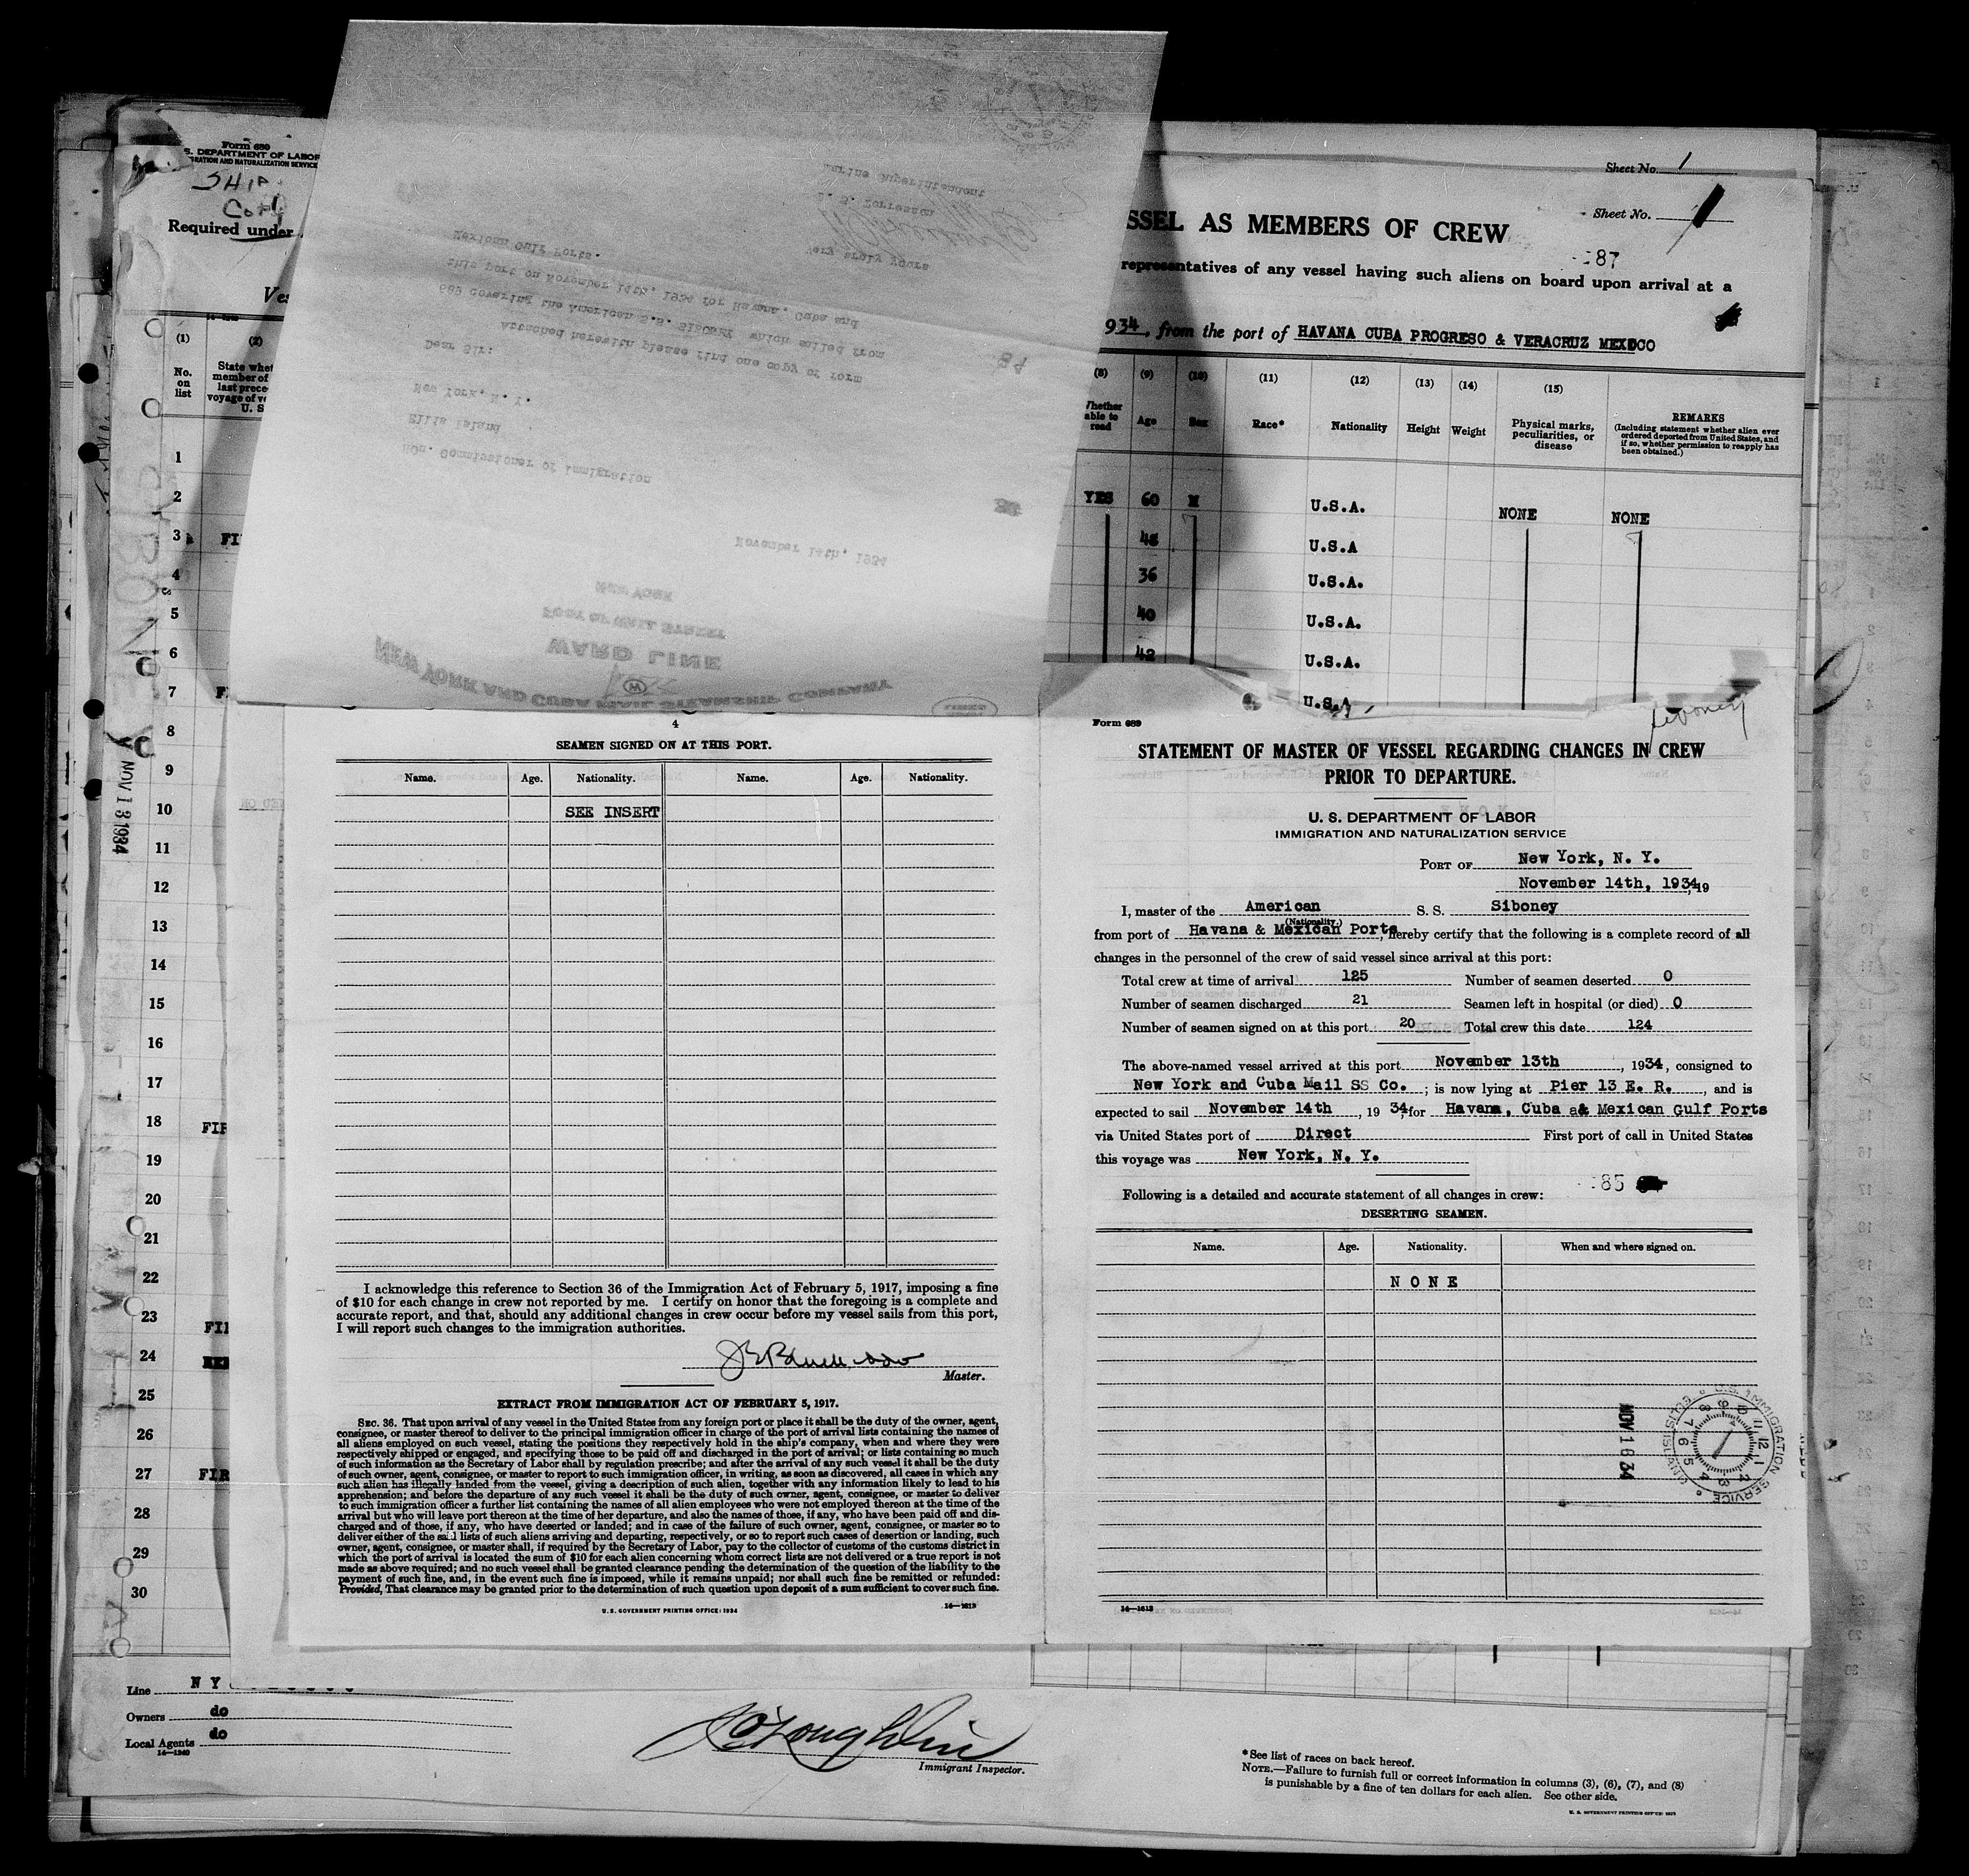 Form 689
S. DEPARTMENT OF LABOR
GRATION AND NATURALIZATION SERVICE
SHIP
Required under
(1)
(2)
No.
on
list
State whet
member of
last prece
voyage of ve
U. S
1
2
3
4
5
6
7
8
9
10
11
12
13
14
15
16
17
18
19
20
21
22
23
24
25
26
27
28
29
30
SIBONEY
NOV 13 1934
NEW YORK AND CUBA MAIL STEAMSHIP COMPANY
WARD LINE
FOOT OF WALL STREET
NEW YORK
November 14th, 1934
Hon. Commissioner of Immigration
Ellis Island
New York, N. Y.
Dear Sir:
Attached herewith please find one copy of form
689 covering the American S.S. SIBONEY which sailed from
this port on November 14th, 1934 for Havana, Cuba and
Mexican Gulf Ports.
Very truly yours
Marine Superintendent
84
Sheet No. 1
Sheet No. 1
SSEL AS MEMBERS OF CREW
87
representatives of any vessel having such aliens on board upon arrival at a
934, from the port of HAVANA CUBA PROGRESO & VERACRUZ MEXICO
(8) (9) (10) (11) (12) (13) (14) (15)
Whether
able to
read
Age
Sex
Race*
Nationality
Height
Weight
Physical marks,
peculiarities, or
disease
REMARKS
(Including statement whether alien ever
ordered deported from United States, and
if so, whether permission to reapply has
been obtained.)
YES 60 M U.S.A. NONE NONE
48 U.S.A
36 U.S.A.
40 U.S.A.
42 U.S.A.
U.S.A
4
SEAMEN SIGNED ON AT THIS PORT.
Name. Age. Nationality. Name. Age. Nationality.
SEE INSERT
I acknowledge this reference to Section 36 of the Immigration Act of February 5, 1917, imposing a fine
of $10 for each change in crew not reported by me. I certify on honor that the foregoing is a complete and
accurate report, and that, should any additional changes in crew occur before my vessel sails from this port,
I will report such changes to the immigration authorities.
Master.
EXTRACT FROM IMMIGRATION ACT OF FEBRUARY 5, 1917.
SEC. 36. That upon arrival of any vessel in the United States from any foreign port or place it shall be the duty of the owner, agent,
consignee, or master thereof to deliver to the principal immigration officer in charge of the port of arrival lists containing the names of
all aliens employed on such vessel, stating the positions they respectively hold in the ship's company, when and where they were
respectively shipped or engaged, and specifying those to be paid off and discharged in the port of arrival; or lists containing so much
of such information as the Secretary of Labor shall by regulation prescribe; and after the arrival of any such vessel it shall be the duty
of such owner, agent, consignee, or master to report to such immigration officer, in writing, as soon as discovered, all cases in which any
such alien has illegally landed from the vessel, giving a description of such alien, together with any information likely to lead to his
apprehension; and before the departure of any such vessel it shall be the duty of such owner, agent, consignee, or master to deliver
to such immigration officer a further list containing the names of all alien employees who were not employed thereon at the time of the
arrival but who will leave port thereon at the time of her departure, and also the names of those, if any, who have been paid off and dis-
charged and of those, if any, who have deserted or landed; and in case of the failure of such owner, agent, consignee, or master so to
deliver either of the said lists of such aliens arriving and departing, respectively, or so to report such cases of desertion or landing, such
owner, agent, consignee, or master shall, if required by the Secretary of Labor, pay to the collector of customs of the customs district in
which the port of arrival is located the sum of $10 for each alien concerning whom correct lists are not delivered or a true report is not
made as above required; and no such vessel shall be granted clearance pending the determination of the question of the liability to the
payment of such fine, and, in the event such fine is imposed, while it remains unpaid; nor shall such fine be remitted or refunded:
Provided, That clearance may be granted prior to the determination of such question upon deposit of a sum sufficient to cover such fine.
U. S. GOVERNMENT PRINTING OFFICE: 1934
14—1613
Form 689
Siboney
STATEMENT OF MASTER OF VESSEL REGARDING CHANGES IN CREW
PRIOR TO DEPARTURE.
U. S. DEPARTMENT OF LABOR
IMMIGRATION AND NATURALIZATION SERVICE
PORT OF New York, N. Y.
November 14th, 1934, 19
I, master of the American S. S. Siboney
(Nationality.)
from port of Havana & Mexican Ports, hereby certify that the following is a complete record of all
changes in the personnel of the crew of said vessel since arrival at this port:
Total crew at time of arrival 125 Number of seamen deserted 0
Number of seamen discharged 21 Seamen left in hospital (or died) 0
Number of seamen signed on at this port 20 Total crew this date 124
The above-named vessel arrived at this port November 13th, 1934, consigned to
New York and Cuba Mail SS Co.; is now lying at Pier 13 E. R., and is
expected to sail November 14th, 19 34, for Havana, Cuba & Mexican Gulf Ports
via United States port of Direct First port of call in United States
this voyage was New York, N. Y.
85
Following is a detailed and accurate statement of all changes in crew:
DESERTING SEAMEN.
Name. Age. Nationality. When and where signed on.
NONE
NOV 16 34
U.S. IMMIGRATION SERVICE
14—1613
Line N Y
Owners do
Local Agents do
14—1240
Immigrant Inspector.
*See list of races on back hereof.
NOTE.—Failure to furnish full or correct information in columns (3), (6), (7), and (8)
is punishable by a fine of ten dollars for each alien. See other side.